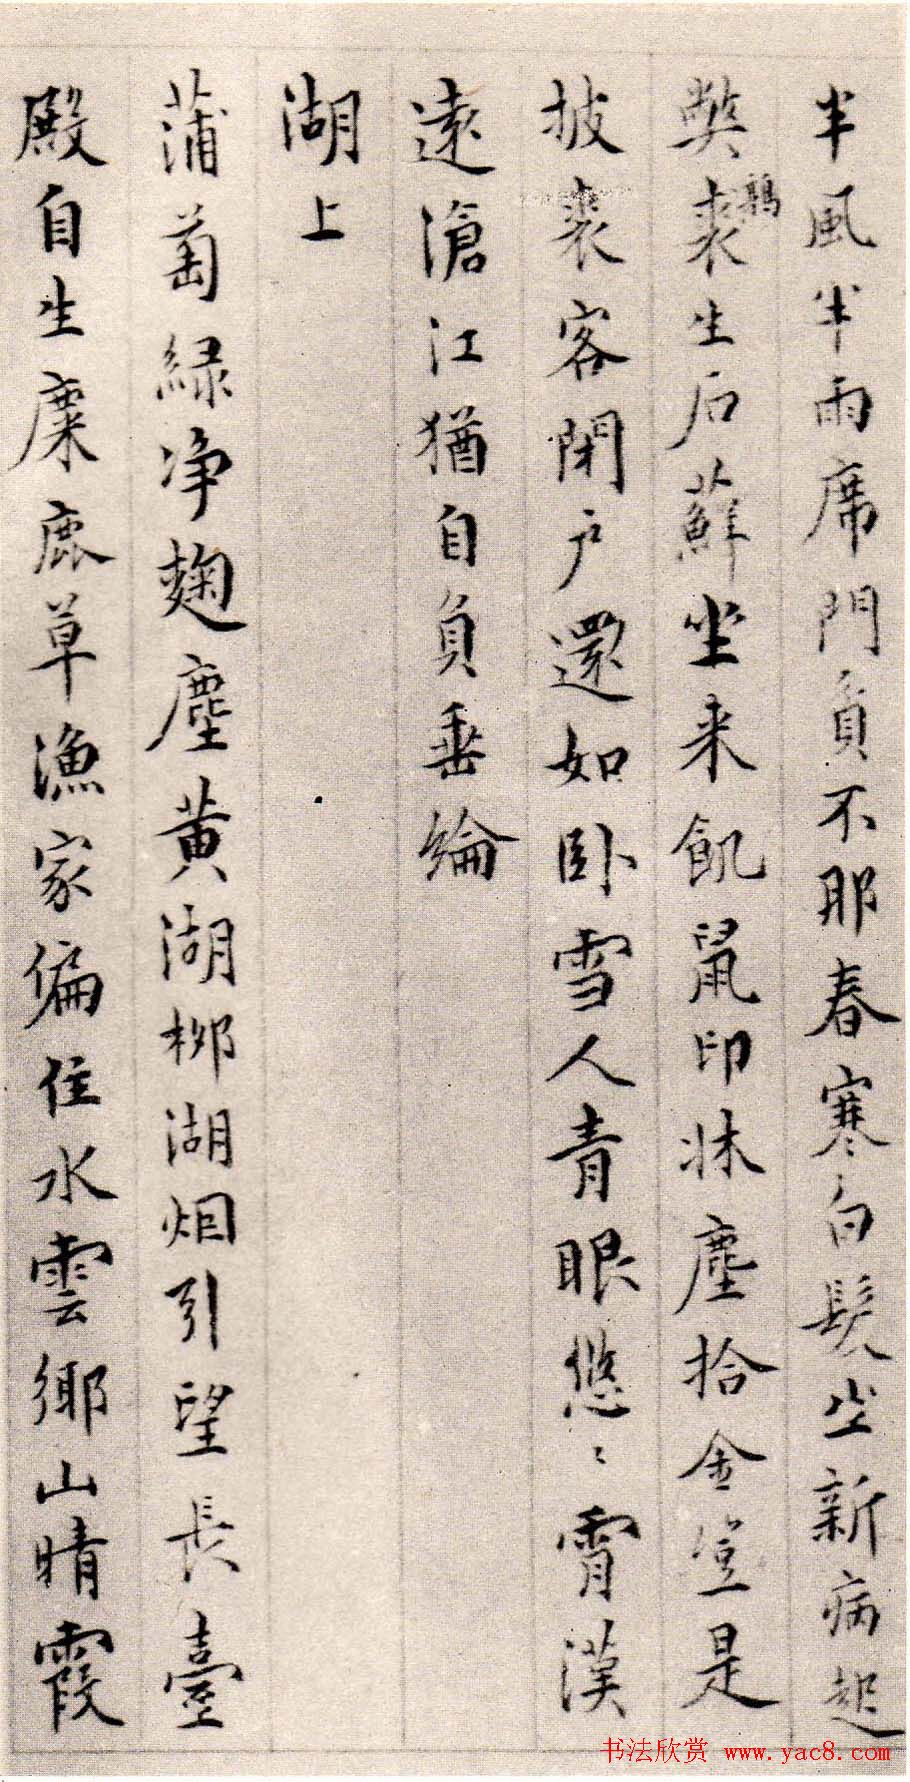 半風半雨席門貧不耶春寒白髮坐新病起
弊鶉裘生石蘚坐来飢鼠印牀塵拾金豈是
披裘客閉户還如卧雪人青眼悠〻霄漢
遠滄江猶自負垂綸
湖上
蒲萄緑净麹塵黄湖柳湖烟引望長臺
殿自生麋鹿草漁家偏住水雲鄉山晴霞
书法欣赏 www.yac8.com